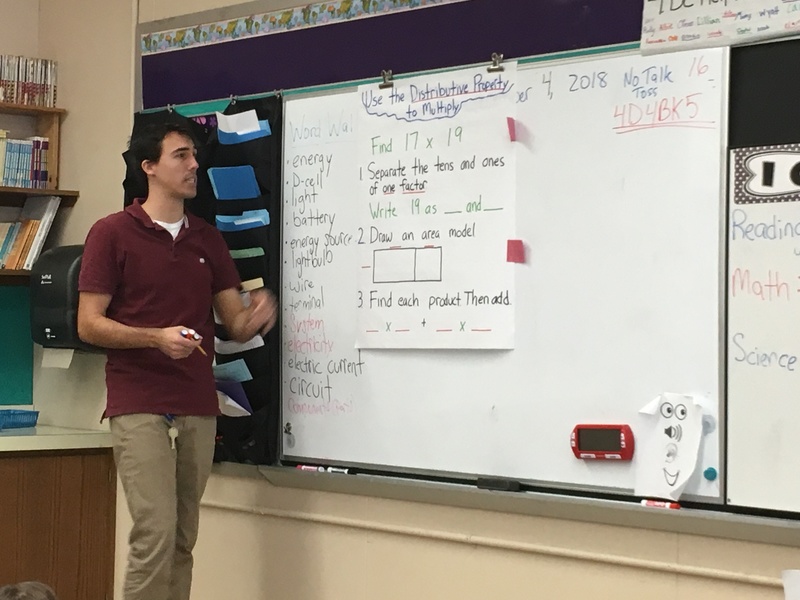 Use the Distributive Property
to Multiply
Find 17 x 19
1 Separate the tens and ones
of one factor
Write 19 as __ and __
2. Draw an area model
3 Find each product Then add.
__ x __ + __ x __
Word Wal
energy
D-cell
light
battery
energy source
lightbulb
wire
terminal
System
electricity
electric current
circuit
er 4, 2018
No Talk 16
Toss
4D4BK5
I C
Reading
Math
Science